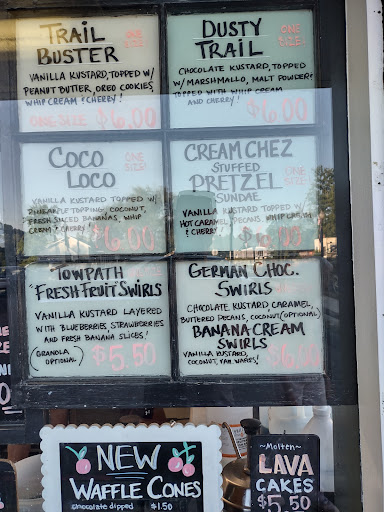 TRAIL
BUSTER
ONE
SIZE!
VANILLA KUSTARD, TOPPED W/
PEANUT BUTTER, OREO COOKIES,
WHIP CREAM & CHERRY!
ONE SIZE $6.00
DUSTY
TRAIL
ONE
SIZE!
CHOCOLATE KUSTARD, TOPPED
W/ MARSHMALLO, MALT POWDER!
TOPPED WITH WHIP CREAM
AND CHERRY!
$6.00
COCO
LOCO
ONE
SIZE
VANILLA KUSTARD TOPPED W/
PINEAPPLE TOPPING, COCONUT,
FRESH SLICED BANANAS, WHIP
CREAM & CHERRY!
$6.00
CREAM CHEZ
STUFFED
PRETZEL
SUNDAE
ONE
SIZE!
VANILLA KUSTARD, TOPPED W/
HOT CARAMEL, PECANS, WHIP CREAM
& CHERRY!
TOWPATH
"FRESH FRUIT" SWIRLS
VANILLA KUSTARD LAYERED
WITH BLUEBERRIES, STRAWBERRIES
AND FRESH BANANA SLICES!
(GRANOLA
OPTIONAL)
$5.50
GERMAN CHOC.
SWIRLS
CHOCOLATE KUSTARD, CARAMEL,
BUTTERED PECANS, COCONUT (OPTIONAL)
BANANA CREAM
SWIRLS
VANILLA KUSTARD,
COCONUT,
WAFERS!
$6.00
NEW
WAFFLE CONES
chocolate dipped $1.50
~Molten~
LAVA
CAKES
$5.50